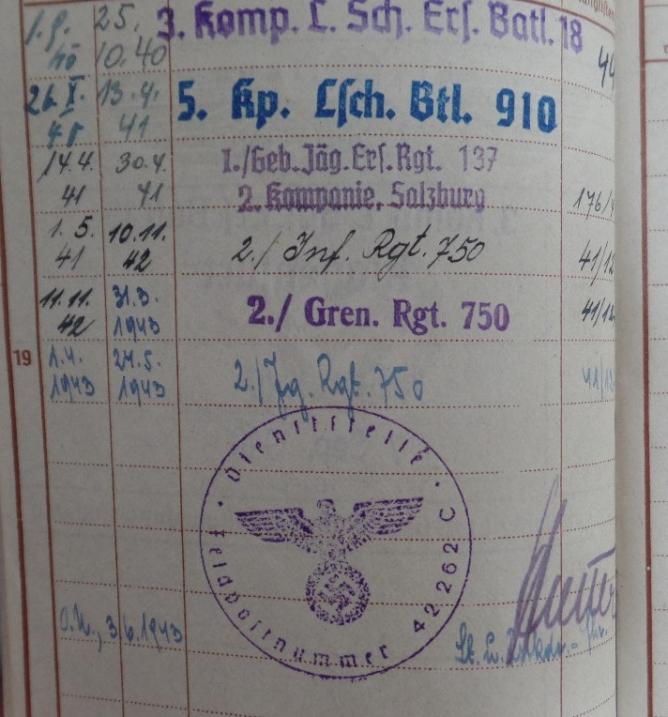 1.9. 25. 3. Komp. L. Sch. Ers. Batl. 18
40 10.40 44
26. X. 13.4. 5. Kp. Lsch. Btl. 910
40 41
14.4. 30.4. 1./Geb. Jäg. Ers. Rgt. 137
41 41 2. Kompanie, Salzburg 176/
1.5. 10.11. 2./ Inf. Rgt. 750
41 42 41/
11.11. 31.3. 2./ Gren. Rgt. 750 41/
42 1943
19 1.4. 24.5. 2./Jg. Rgt. 750 41/
1943 1943
Dienststelle
Feldpostnummer 42262 C
O.U., 3.6.1943
Lt. u.